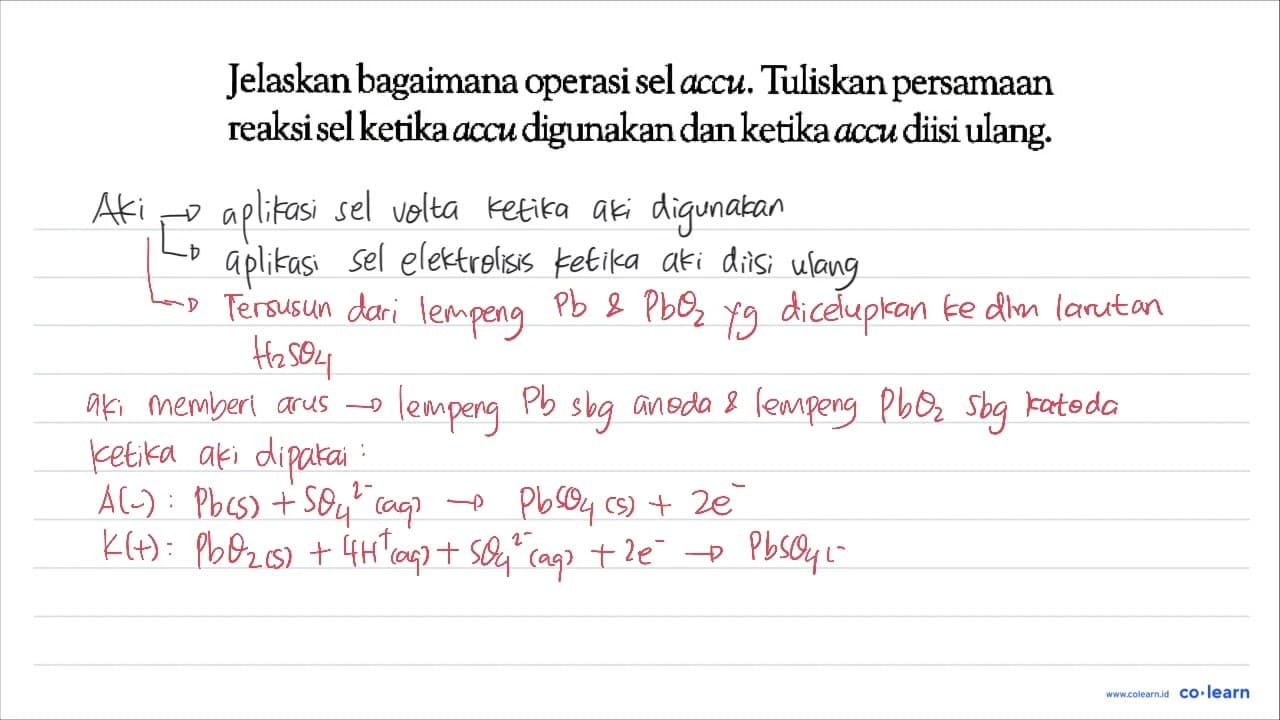 Jelaskan bagaimana operasi sel accu. Tuliskan persamaan
reaksi sel ketika accu digunakan dan ketika accu diisi ulang.
Aki → aplikasi sel volta ketika aki digunakan
→ aplikasi sel elektrolisis ketika aki diisi ulang
→ Tersusun dari lempeng Pb & PbO₂ yg dicelupkan ke dlm larutan
H₂SO₄
aki memberi arus → lempeng Pb sbg anoda & lempeng PbO₂ sbg katoda
ketika aki dipakai :
A(-) : Pb(s) + SO₄²⁻(aq) → PbSO₄(s) + 2e⁻
K(+) : PbO₂(s) + 4H⁺(aq) + SO₄²⁻(aq) + 2e⁻ → PbSO₄(
www.colearn.id co·learn